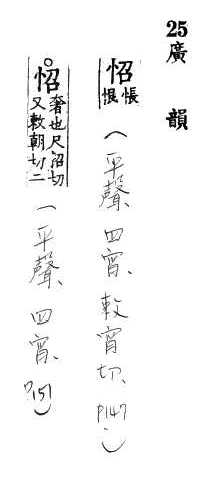 25廣韻
怊悵恨(平聲、四宵、敕宵切、P147、)
怊奢也尺沼切又敕朝切二(平聲、四宵、P151)